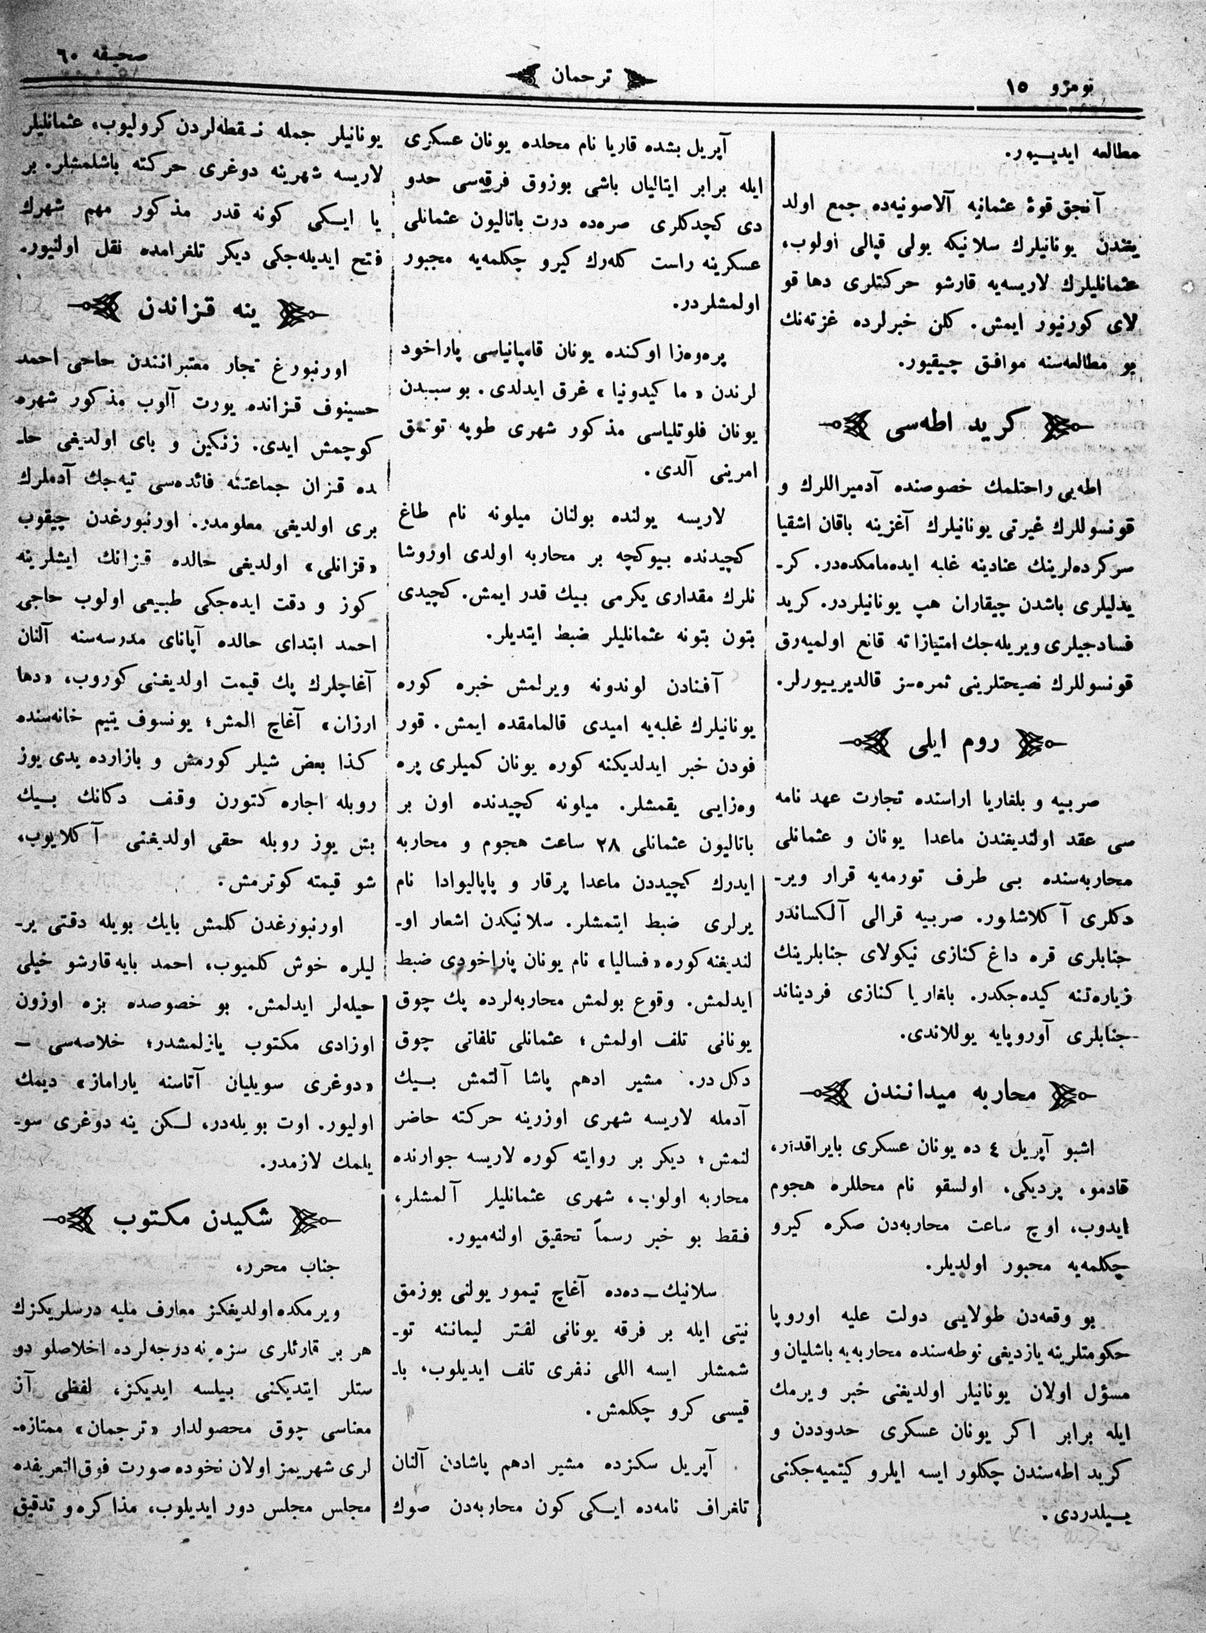 نومرو ١٥
ترجمان
صحیفه ٦٠
مطالعه ایدییور.
آنجق قوۀ عثمانیه آلاصونیه‌ده جمع اولد
یغندن یونانیلرك سلانیکه یولی قپالی اولوب،
عثمانلیلرك لاریسه‌یه قارشو حرکتلری دها قو
لای کورنیور ایمش. کلن خبرلرده غزته‌نك
بو مطالعه‌سنه موافق چیقیور.
کرید اطه‌سی
اطه‌یی راحتلمك خصوصنده آدمیراللرك و
قونسوللرك غیرتی یونانیلرك آغزینه باقان اشقیا
سرکرده‌لرینك عنادینه غلبه ایده‌مامکده‌در. کر-
یدلیلری باشدن چیقاران هپ یونانیلردر. کرید
فسادجیلری ویریله‌جك امتیازاته قانع اولمیه‌رق
قونسوللرك نصیحتلرینی ثمره‌سز قالدیرییورلر.
روم ایلی
صربیه و بلغاریا اراسنده تجارت عهد نامه
سی عقد اولندیغندن ماعدا یونان و عثمانلی
محاربه‌سنده بی طرف تورمه‌یه قرار ویر-
دکلری آکلاشلور. صربیه قرالی آلکساندر
جنابلری قره داغ کنازی نیکولای جنابلرینك
زیاره‌تنه کیده‌جکدر. بلغاریا کنازی فردیناند
جنابلری آوروپایه یوللاندی.
محاربه میدانندن
اشبو آپریل ٤ ده یونان عسکری بایراقدار،
قادمو، پردیکی، اولسقو نام محللره هجوم
ایدوب، اوچ ساعت محاربه‌دن صکره کیرو
چکلمه‌یه مجبور اولدیلر.
بو وقعه‌دن طولایی دولت علیه اوروپا
حکومتلرینه یازدیغی نوطه‌سنده محاربه‌یه باشلیان و
مسؤل اولان یونانیلر اولدیغنی خبر ویرمك
ایله برابر اکر یونان عسکری حدوددن و
کرید اطه‌سندن چکلور ایسه ایلرو کیتمیه‌جکنی
بیلدردی.
آپریل بشده قاریا نام محلده یونان عسکری
ایله برابر ایتالیان باشی بوزوق فرقه‌سی حدو
دی کچدکلری صره‌ده درت باتالیون عثمانلی
عسکرینه راست کله‌رك کیرو چکلمه‌یه مجبور
اولمشلردر.
پره‌وه‌زا اوکنده یونان قامپانیاسی پاراخود
لرندن «ماکیدونیا» غرق ایدلدی. بو سببدن
یونان فلوتلیاسی مذکور شهری طوپه توتمق
امرینی آلدی.
لاریسه یولنده بولنان میلونه نام طاغ
کچیدنده بیوکچه بر محاربه اولدی اوروشا
نلرك مقداری یکرمی بیك قدر ایمش. کچیدی
بتون بتونه عثمانلیلر ضبط ایتدیلر.
آفنادن لوندونه ویرلمش خبره کوره
یونانیلرك غلبه‌یه امیدی قالمامقده ایمش. قور
فودن خبر ایدلدیکنه کوره یونان کمیلری پره
وه‌زایی یقمشلر. میلونه کچیدنده اون بر
باتالیون عثمانلی ٢٨ ساعت هجوم و محاربه
ایدرك کچیددن ماعدا پرقار و پاپالیوادا نام
یرلری ضبط ایتمشلر. سلانیکدن اشعار او-
لندیغنه کوره «فسالیا» نام یونان پاراخودی ضبط
ایدلمش. وقوع بولمش محاربه‌لرده پك چوق
یونانی تلف اولمش؛ عثمانلی تلفاتی چوق
دکل در. مشیر ادهم پاشا آلتمش بیك
آدمله لاریسه شهری اوزرینه حرکته حاضر
لنمش؛ دیکر بر روایته کوره لاریسه جوارنده
محاربه اولوب، شهری عثمانلیلر آلمشلر،
فقط بو خبر رسماً تحقیق اولنه‌میور.
سلانیك – ده‌ده آغاچ تیمور یولنی بوزمق
نیتی ایله بر فرقه یونانی لفتر لیماننه تو-
شمشلر ایسه اللی نفری تلف ایدیلوب، با-
قیسی کرو چکلمش.
آپریل سکزده مشیر ادهم پاشادن آلنان
تلغراف نامه‌ده ایکی کون محاربه‌دن صوك
یونانیلر جمله نقطه‌لردن کرولیوب، عثمانلیلر
لاریسه شهرینه دوغری حرکته باشلمشلر. بر
یا ایکی کونه قدر مذکور مهم شهرك
فتح ایدیله‌جکی دیکر تلغرامده نقل اولنیور.
ینه قزاندن
اورنبورغ تجار معتبرانندن حاجی احمد
حسینوف قزانده یورت آلوب مذکور شهره
کوچمش ایدی. زنکین و بای اولدیغی حا-
ده قزان جماعتنه فائده‌سی تیه‌جك آدملرك
بری اولدیغی معلومدر. اورنبورغدن چیقوب
«قزانلی» اولدیغی حالده قزانك ایشلرینه
کوز و دقت ایده‌جکی طبیعی اولوب حاجی
احمد ابتدای حالده آپانای مدرسه‌سنه آلنان
آغاچلرك پك قیمت اولدیغنی کوروب، «دها
ارزان» آغاچ المش؛ یونسوف یتیم خانه‌سنده
کذا بعض شیلر کورمش و بازارده یدی یوز
روبله اجاره کتورن وقف دکانك بیك
بش یوز روبله حقی اولدیغنی آکلایوب،
شو قیمته کوترمش.
اورنبورغدن کلمش بایك بویله دقتی یر-
لیلره خوش کلمیوب، احمد بایه قارشو خیلی
حیله‌لر ایدلمش. بو خصوصده بزه اوزون
اوزادی مکتوب یازلمشدر؛ خلاصه‌سی –
«دوغری سویلیان آتاسنه یاراماز» دیمك
اولیور. اوت بویله‌در، لکن ینه دوغری سو-
یلمك لازمدر.
شکیدن مکتوب
جناب محرر،
ویرمکده اولدیغکز معارف ملیه درسلریکزك
هر بر قارئلری سزه نه درجه‌لرده اخلاصلو دو
ستلر ایتدیکنی بیلسه ایدیکز، لفظی آز
معناسی چوق محصولدار «ترجمان» ممتازه-
لری شهریمز اولان نخوده صورت فوق‌التعریفده
مجلس مجلس دور ایدیلوب، مذاکره و تدقیق